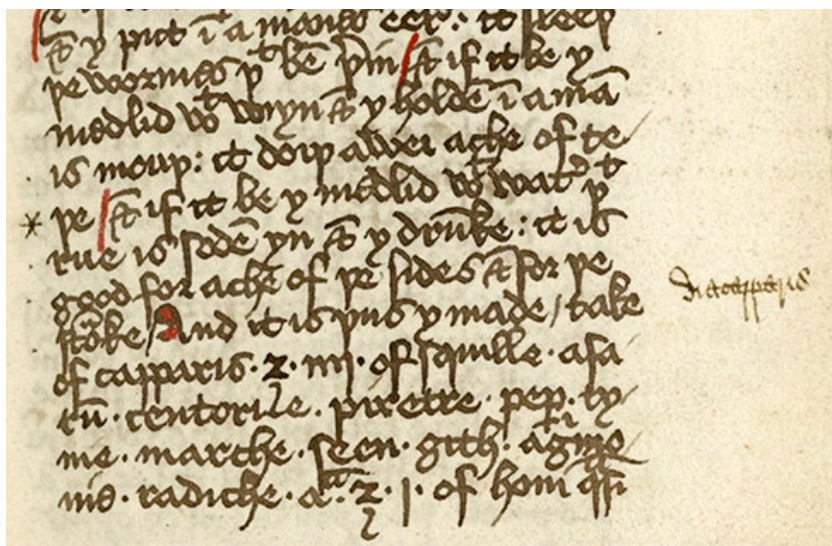 ⁊ y put ī a mannes eere : it sleeþ
þe wormes þͭ bē þrin ⁊ if it be y
medlid wͭ wyyn ⁊ y holdē ī a mā
is mouþ : it doiþ awei ache of te/
þe ⁊ if it be y medlid wͭ wat̉ þͭ
rue is sodē yn ⁊ y drūke : it is
good for ache of þe sides ⁊ for þe
stōke / And it is þus y made / take
of capparis · ʒ · iiij · of squille · asa
rū · centorie · piretre · pep̲ · ty/
me · marche · seen · gith · agͥmo/
nis · radiche · aͣ · ʒ · j · of honi
diacapparis